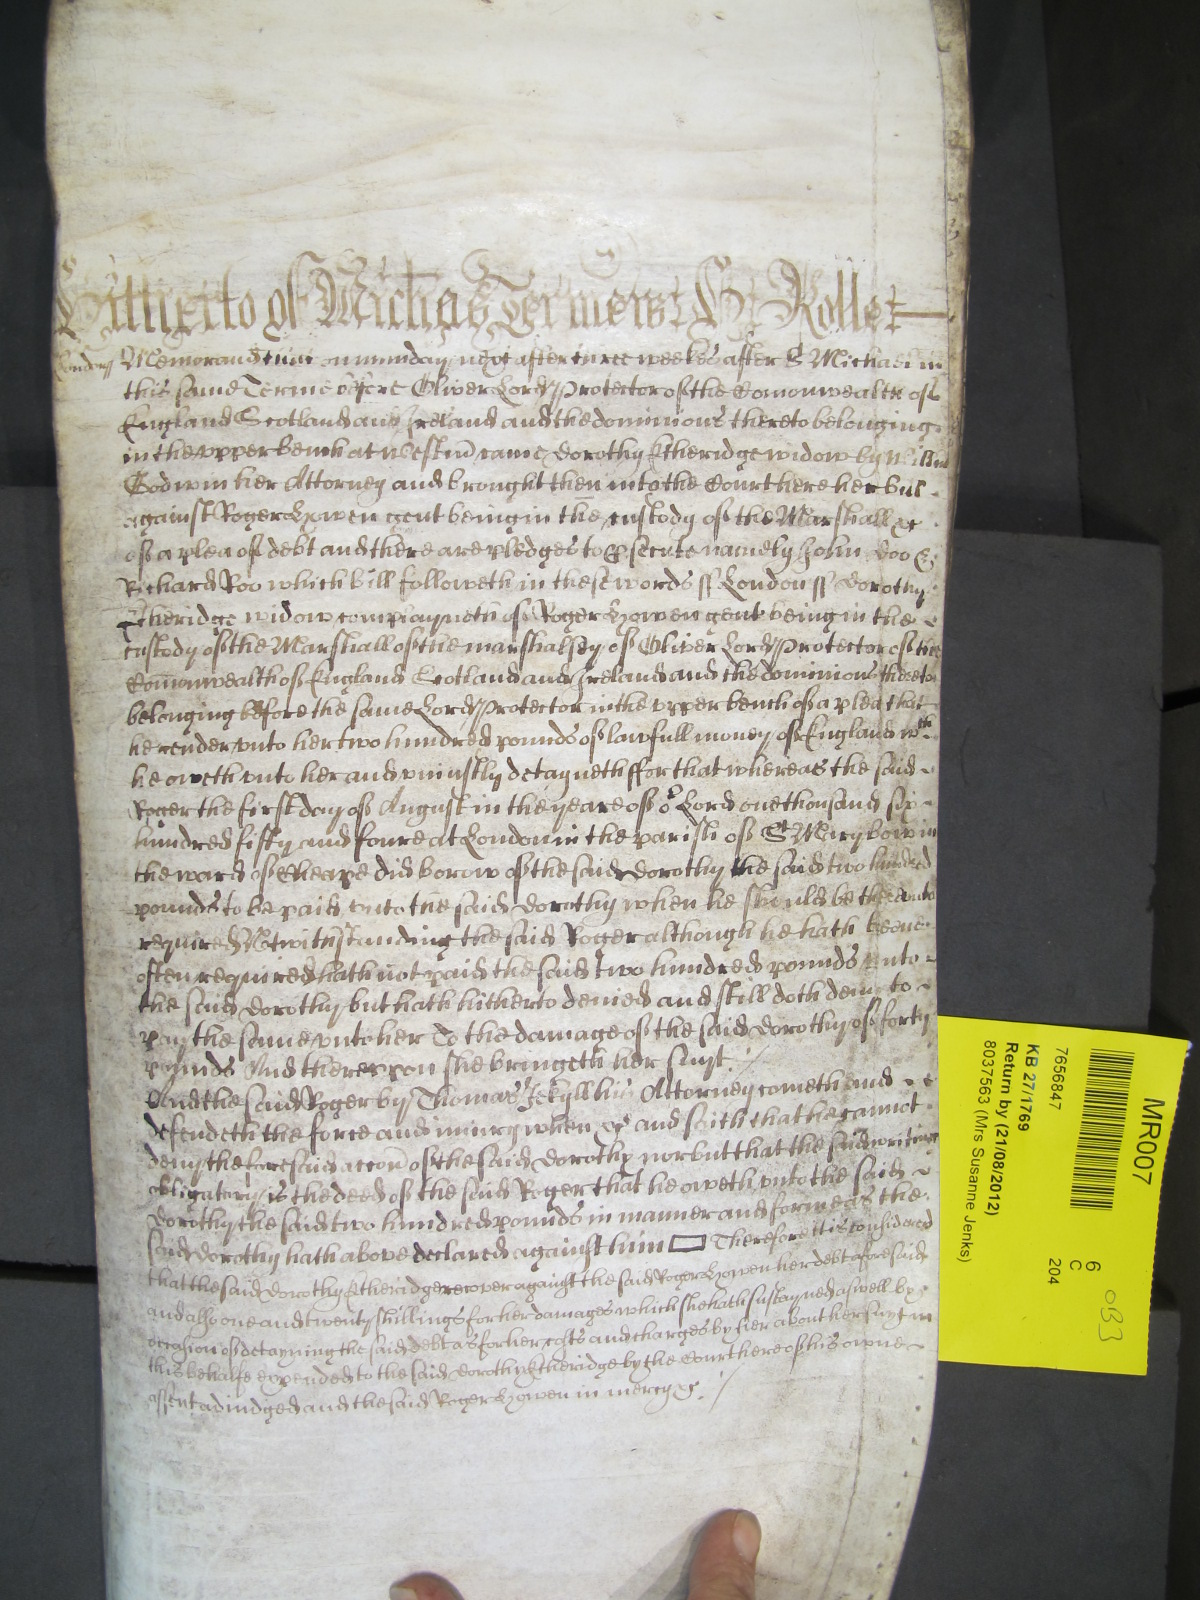 Hitherto of Michas Terme Rolle
London ss Memorandum on munday next after three weekes after St Michaell in
this same Terme before Oliver Lord Protector of the Comonwealth of
England Scotland and Ireland and the dominions thereto belonging
in the upper bench at Westm̄ came Dorothy Etheridge widow by Willm
Godwin her Attorney and brought then into the Court here her bill
against Roger Gowen gent being in the custody of the Marshall &c
of a plea of debt and there are pledges to p'secute namely John Doo &
Richard Roo which bill followeth in these words ss London ss Dorothy
Etheridge widow complayneth of Roger Gowen gent being in the
custody of the Marshall of the marshalsey of Oliver Lord Protector of the
Com̄onwealth of England Scotland and Ireland and the dominions thereto
belonging before the same Lord Protector in the upper bench of a plea that
he render unto her two hundred pounds of lawfull money of England wch
he oweth unto her and uniustly detayneth ffor that whereas the said
Roger the first day of August in the yeare of or Lord one thousand six
hundred fifty and foure at London in the parish of St Mary bow in
the ward of Cheape did borow of the said Dorothy the said two hundred
pounds to be paid unto the said Dorothy when he should be thereunto
required Notwithstanding the said Roger although he hath beene
often required hath not paid the said two hundred pounds unto
the said Dorothy but hath hitherto denied and still doth deny to
pay the same unto her To the damage of the said Dorothy of forty
pounds And thereupon she bringeth her suyt
And the said Roger by Thomas Jekyll his Attorney cometh and
defendeth the force and iniury when &c and saith that he cannot
deny the foresaid accōn of the said Dorothy nor but that the said writing
obligatory is the deed of the said Roger that he oweth unto the said
Dorothy the said two hundred pounds in manner and forme as the
said Dorothy hath above declared against him Therefore itt is considered
that the said Dorothy Etheridge recover against the said Roger Gowen her debt aforesaid
and also one and twenty shillings for her damages which she hath sustayned aswell by
occasion of detayning the said debt as for her costs and charges by her about her suyt in
this behalfe expended to the said Dorothy Etheridge by the Court here of his owne
assent adiudged and the said Roger Gowen in mercy &c.
MR007
7656847
6
C
204
KB 27/1769
Return by (21/08/2012)
8037563 (Mrs Susanne Jenks)
OB3